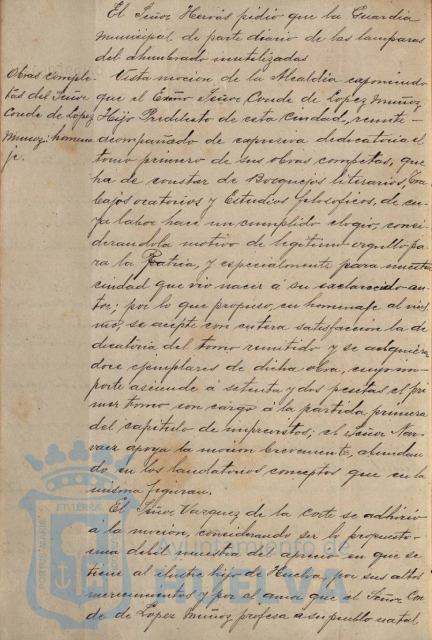 El Señor Hervás pidió que la Guardia
Municipal de parte diario de las lamparas
del alumbrado inutilizadas
Obras comple-
tas del Señor
Conde de Lopez
Muñoz: homena
je.
Vista mocion de la Alcaldia exponiendo
que el Exmo Señor Conde de Lopez Muñoz,
Hijo Predilecto de esta Ciudad, remite
acompañado de expresiva dedicatoria el
tomo primero de sus obras completas, que
ha de constar de Bosquejos literarios, Tra
bajos oratorios y Estudios filosoficos, de cu
ya labor hace un cumplido elogio, consi
derandola motivo de legitimo orgullo pa
ra la Patria, y especialmente para nuestra
ciudad que vió nacer á su esclarecido au-
tor; por lo que propuso, en homenaje al mis
mo, se acepte con entera satisfaccion la de
dicatoria del tomo remitido y se adquiera
doce ejemplares de dicha obra, cuyo im
porte asciende á setenta y dos pesetas el pri
mer tomo con cargo á la partida primera
del capitulo de imprevistos; el Señor Nar
vaez apoya la mocion brevemente, abundan
do en los laudatorios conceptos que en la
misma figuran.
El Señor Vazquez de la Corte se adhirió
á la mocion, considerando ser lo propuesto
una debil muestra del aprecio en que se
tiene al ilustre hijo de Huelva, por sus altos
merecimientos y por el amor que el Señor Con
de de Lopez Muñoz profesa á su pueblo natal,
PORTUS MARIS ET TERRÆ CUSTODIA
Ayuntamiento de
HUELVA